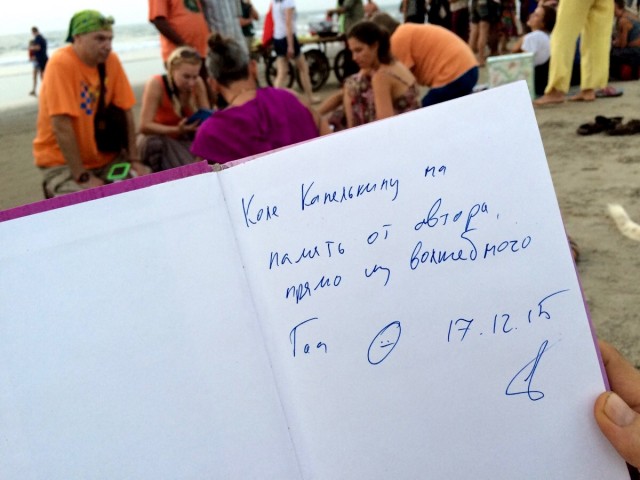 Коле Капелькину на
память от автора,
прямо из волшебного
Гоа 17.12.15